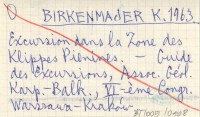 BIRKENMAJER K. 1963.
Excursion dans la Zone des
Klippes Pienines. - Guide
des Excursions, Assoc. Géol.
Karp.-Balk., VI-ème Congr.
Warszawa-Kraków.